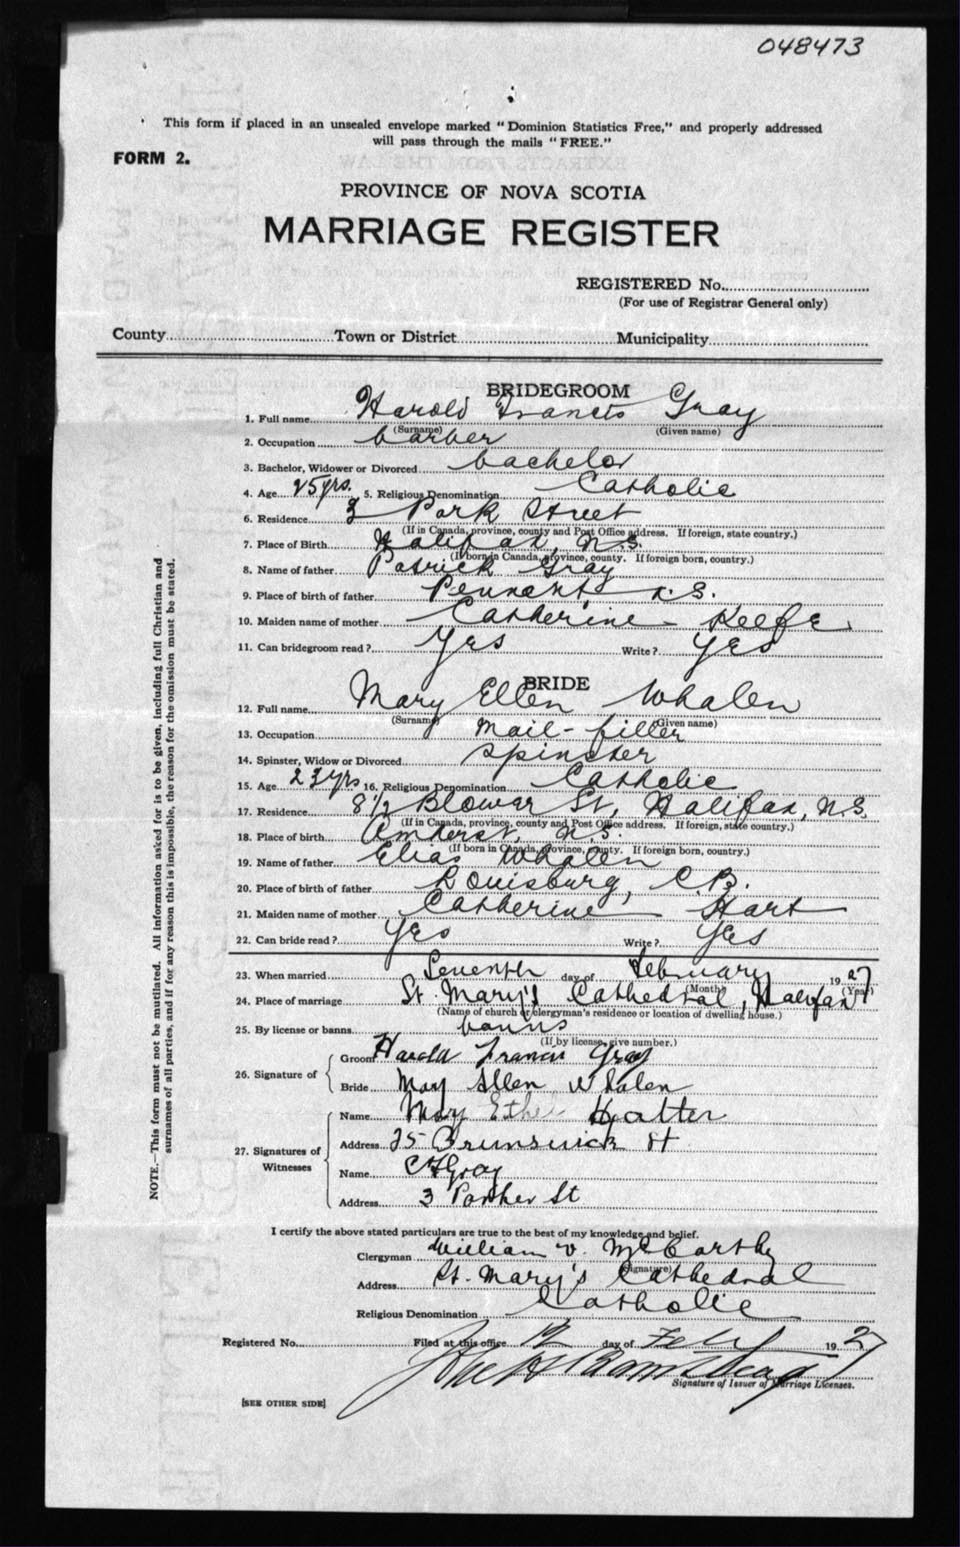 048473
This form if placed in an unsealed envelope marked "Dominion Statistics Free," and properly addressed
will pass through the mails "FREE."
FORM 2.
PROVINCE OF NOVA SCOTIA
MARRIAGE REGISTER
REGISTERED No.
(For use of Registrar General only)
County Town or District Municipality
BRIDEGROOM
1. Full name Harold Francis Gray
(Surname) (Given name)
2. Occupation barber
3. Bachelor, Widower or Divorced bachelor
4. Age 25 yrs. 5. Religious Denomination Catholic
6. Residence 3 Park Street
(If in Canada, province, county and Post Office address. If foreign, state country.)
7. Place of Birth Halifax, N.S.
(If born in Canada, province, county. If foreign born, country.)
8. Name of father Patrick Gray
9. Place of birth of father Pennant N.S.
10. Maiden name of mother Catherine Keefe
11. Can bridegroom read? Yes Write? Yes
BRIDE
12. Full name Mary Ellen Whalen
(Surname) (Given name)
13. Occupation mail-filler
14. Spinster, Widow or Divorced spinster
15. Age 23 yrs 16. Religious Denomination Catholic
17. Residence 8 1/2 Blower St, Halifax, N.S.
(If in Canada, province, county and Post Office address. If foreign, state country.)
18. Place of birth Amherst, N.S.
(If born in Canada, province, county. If foreign born, country.)
19. Name of father Elias Whalen
20. Place of birth of father Louisburg, C.B.
21. Maiden name of mother Catherine Hart
22. Can bride read? Yes Write? Yes
23. When married Seventh day of February 1927
(Month) (Year)
24. Place of marriage St. Mary's Cathedral, Halifax
(Name of church or clergyman's residence or location of dwelling house.)
25. By license or banns banns
(If by license, give number.)
26. Signature of
Groom Harold Francis Gray
Bride Mary Ellen Whalen
27. Signatures of Witnesses
Name Mary Ethel Hatter
Address 25 Brunswick St
Name C F Gray
Address 3 Parker St
I certify the above stated particulars are true to the best of my knowledge and belief.
Clergyman William V. McCarthy
(Signature)
Address St. Mary's Cathedral
Religious Denomination Catholic
Registered No. Filed at this office 12 day of Feby 1927
Signature of Issuer of Marriage Licenses.
[SEE OTHER SIDE]
NOTE.—This form must not be mutilated. All information asked for is to be given, including full Christian and
surnames of all parties, and if for any reason this is impossible, the reason for the omission must be stated.